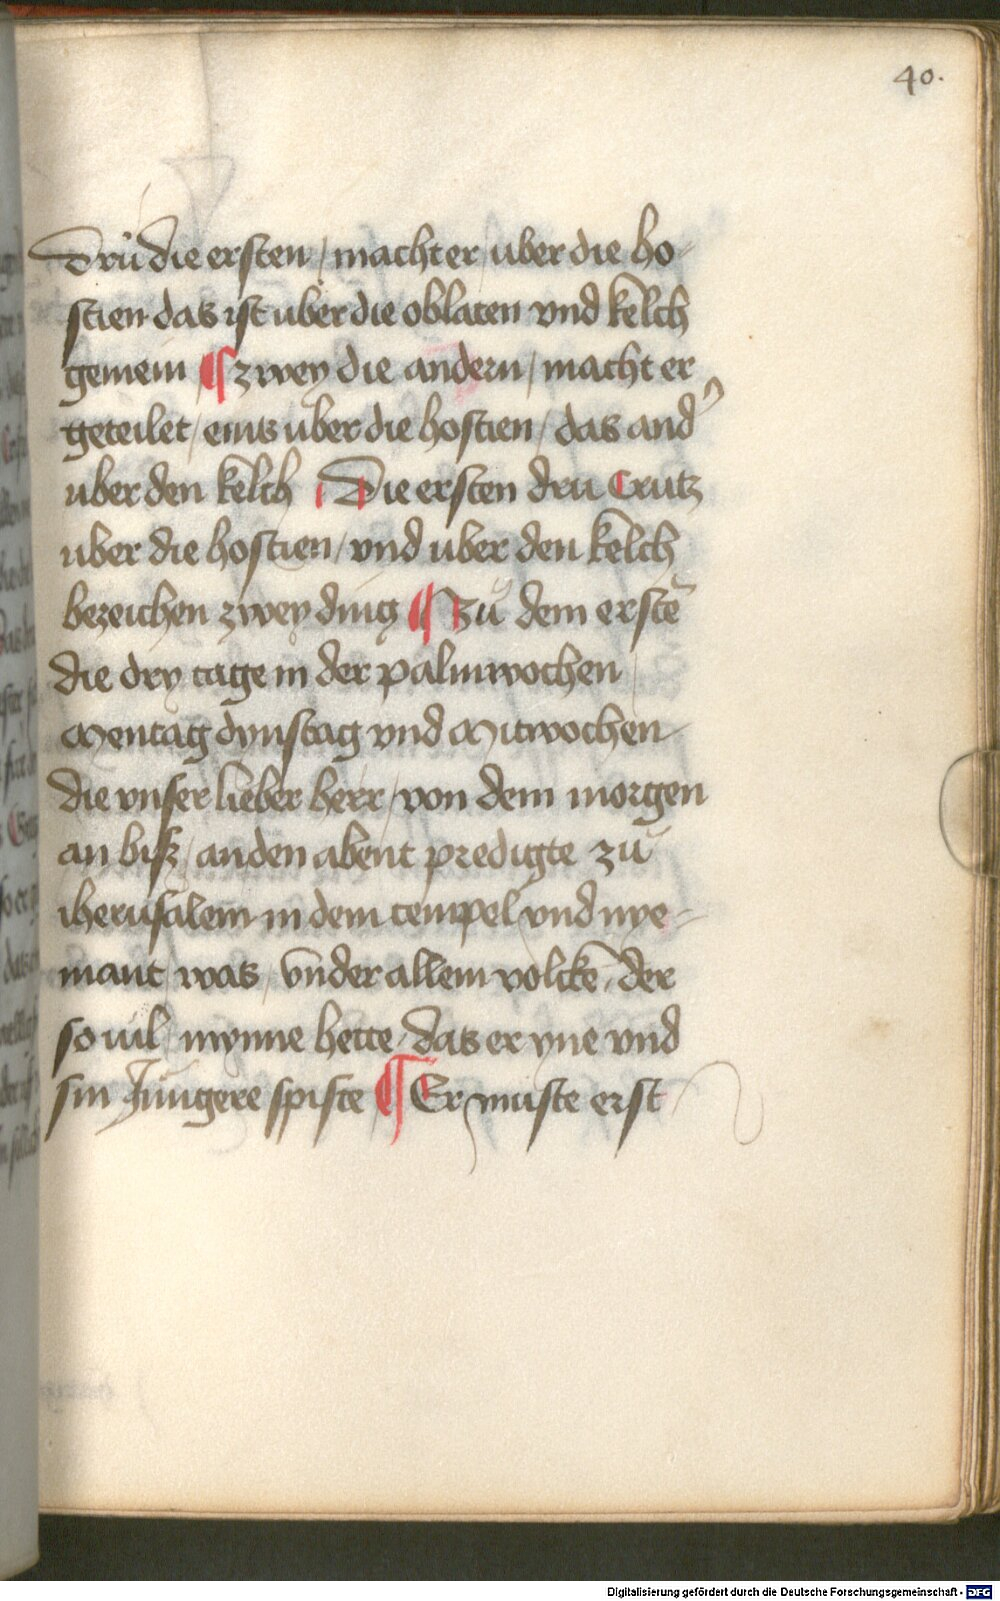 40.
Drü die ersten / macht er / uber die ho-
stien das ist uber die oblaten vnd kelch
gemein ¶ zwey die andern / macht er
geteilet / eins uber die hostien / das and'
uber den kelch / Die ersten dru Crutz
uber die hostien / vnd uber den kelch
bezeichen zwey ding ¶ Zů dem erstē
die dry tage in der palmwochen /
Mentag dynstag vnd Mitwochen
die vnser lieber herr / von dem morgen
an bisz / an den abent predigte zů
iherusalem in dem tempel / vnd nye-
mant was / vnder allem volcke / der
so uil mynne hette / das er yne vnd
sin Jungere spiste ¶ Er muste erst
Digitalisierung gefördert durch die Deutsche Forschungsgemeinschaft - DFG